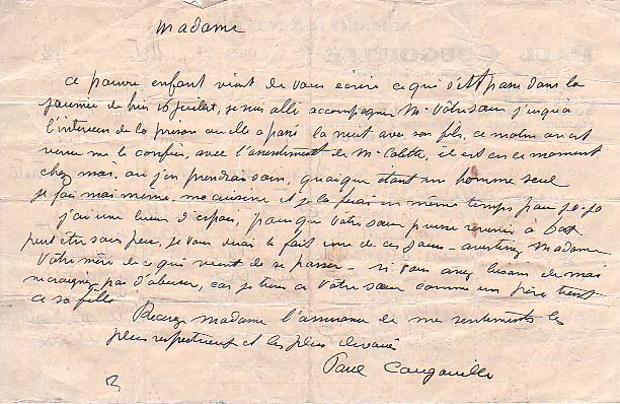 Madame
ce pauvre enfant vient de vous écrire ce qui s'est passé dans la
journée de hier 16 juillet, je suis allé accompagner Me Votre sœur jusqu'à
l'interieur de la prison ou elle a passé la nuit avec son fils, ce matin on est
venu me le confier, avec l'assentiment de Mr Colette, il est en ce moment
chez moi, ou j'en prendrai soin, quoique étant un homme seul
je fais moi meme, ma cuisine et je la ferai en même temps pour jo-jo
j'ai une lueur d'espoir, pour que votre sœur puisse revenir à
peut être sous peu, je vous dirai le fait un de ces jours - avertissez Madame
Votre mère de ce qui vient de se passer - si vous avez besoin de moi
ne craignez pas d'abuser, car je tiens a Votre sœur comme un père tient
a sa fille
Recevez madame l'assurance de mes sentiments les
plus respectueux et les plus dévoués
Paul Cougouille